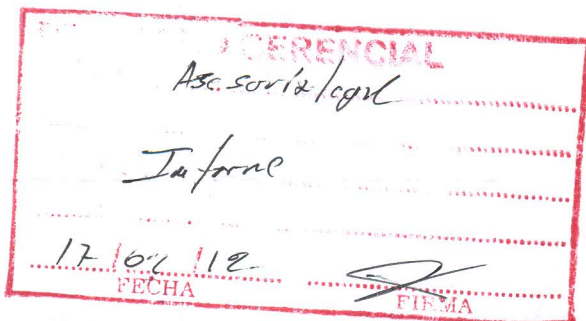 GERENCIAL
Asesoría legal
Informe
17/02/12
FECHA FIRMA